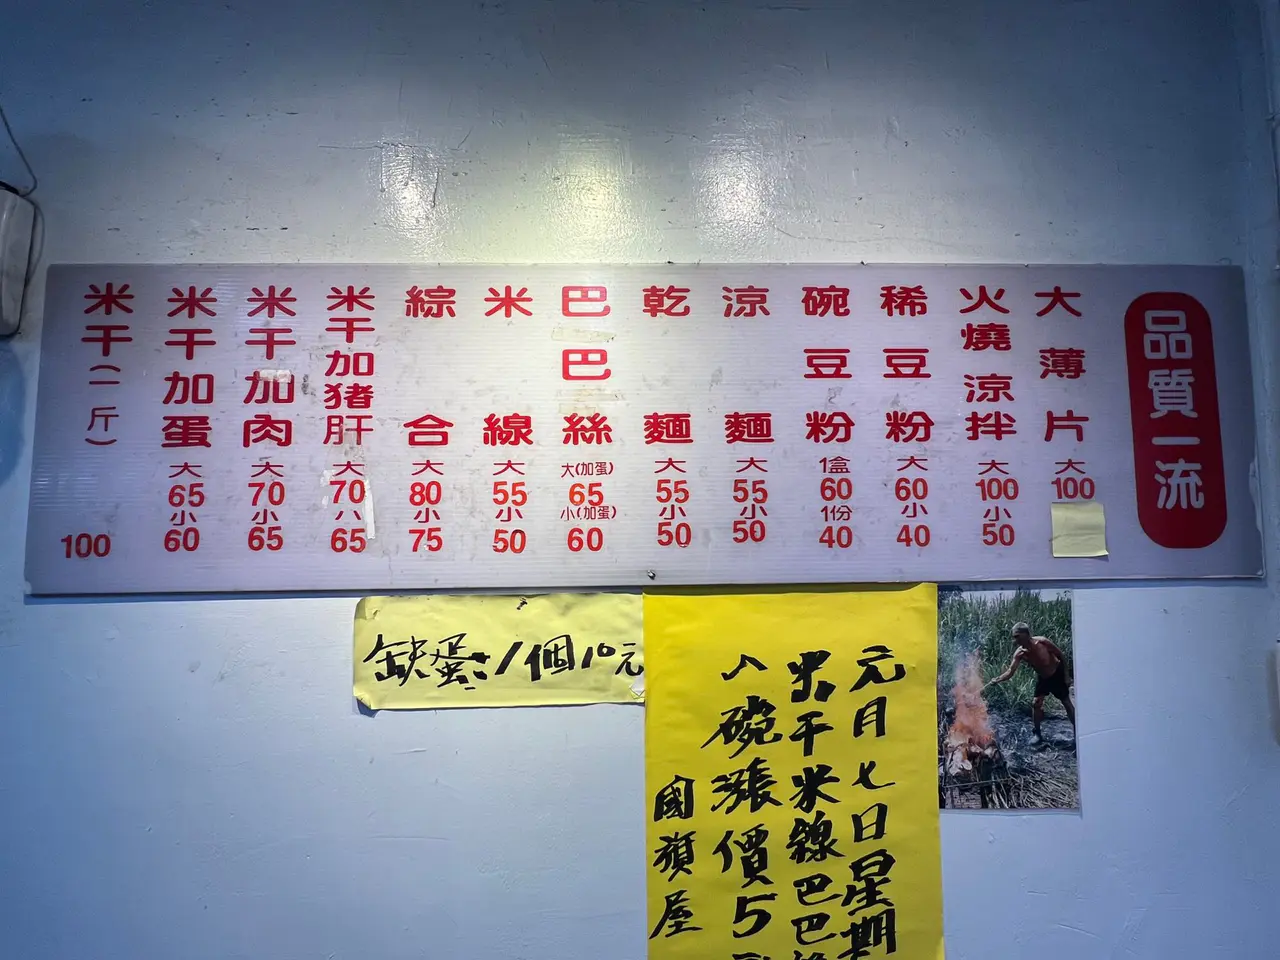 品質一流
大薄片 大100
火燒涼拌 大100 小50
稀豆粉 大60 小40
碗豆粉 1盒60 1份40
涼麵 大55 小50
乾麵 大55 小50
巴巴絲 大(加蛋)65 小(加蛋)60
米線 大55 小50
綜合 大80 小75
米干加豬肝 大70 小65
米干加肉 大70 小65
米干加蛋 大65 小60
米干(一斤) 100
缺蛋:1個10元
元月七日星期
米干米線巴巴
八碗漲價5
國旗屋